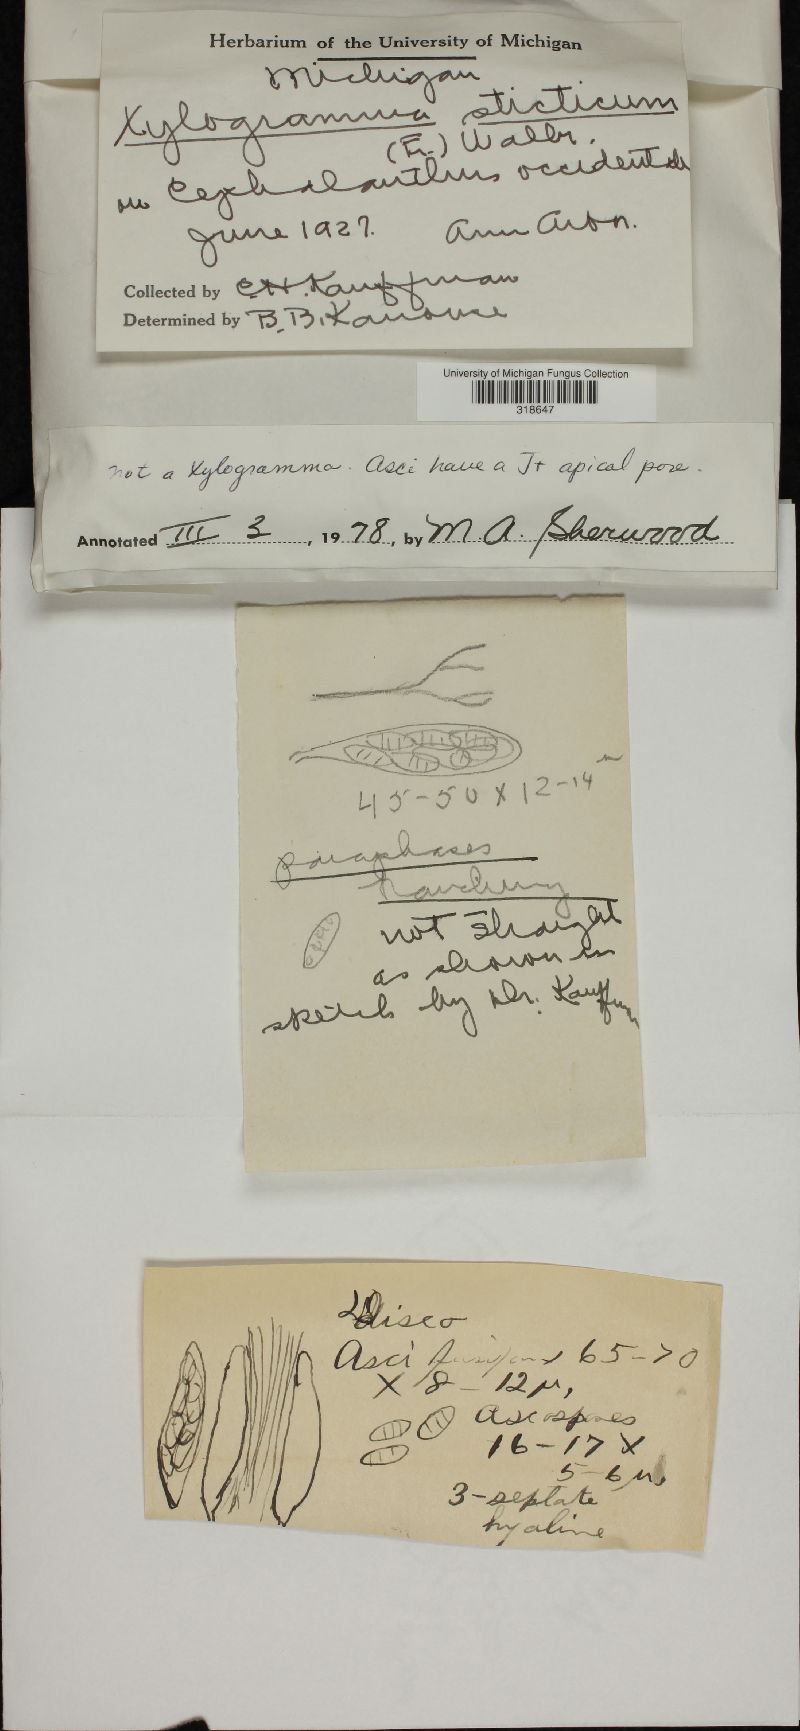 Herbarium of the University of Michigan
Michigan
Xylogramma sticticum
(Fr.) Wallr.
on Cephalanthus occidentalis
June 1927. Ann Arbor.
Collected by C.H. Kauffman
Determined by B.B. Kanouse
University of Michigan Fungus Collection
318647
not a Xylogramma. Asci have a J+ apical pore.
Annotated III 3, 1978, by M. A. Sherwood
45-50 x 12-14 µ
paraphases
branching
not straight
as shown in
sketch by Dr. Kauffman
disco
Asci fusiform 65-70
x 8-12 µ,
ascospores
16-17 x
5-6 µ,
3-septate
hyaline